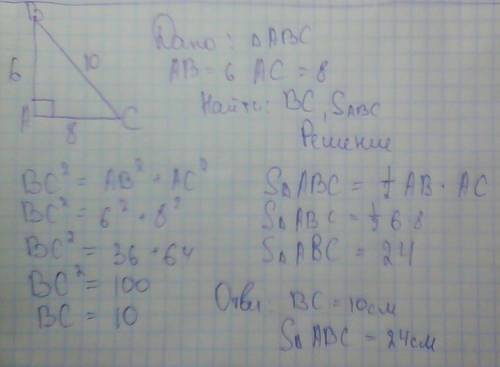 B
6
10
A
8
C
Дано: △ABC
AB = 6 AC = 8
Найти: BC, S ABC
Решение
BC² = AB² + AC²
BC² = 6² + 8²
BC² = 36 + 64
BC² = 100
BC = 10
S△ABC = ½ AB · AC
S△ABC = ½ 6·8
S△ABC = 24
Ответ: BC = 10см
S△ABC = 24см